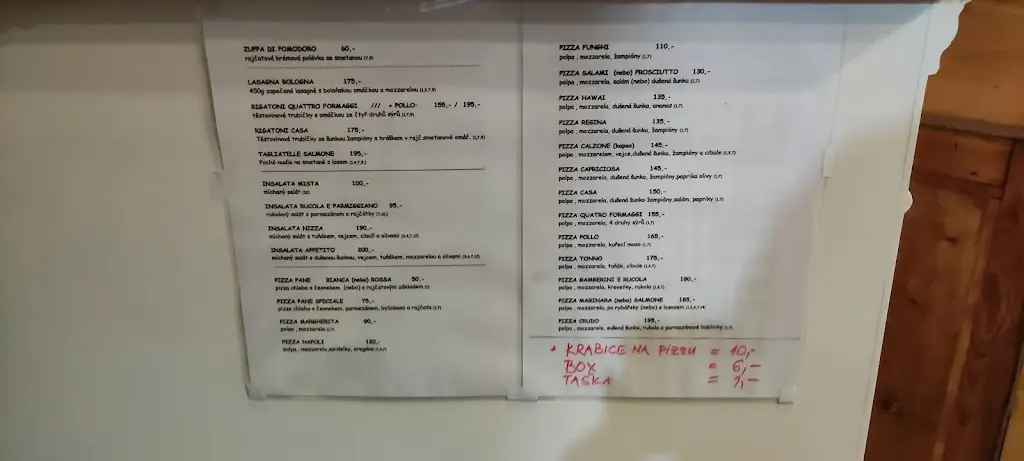 ZUPPA DI POMODORO 60,-
rajčatová krémová polévka se smetanou (7,9)
LASAGNA BOLOGNA 175,-
450g zapečené lasagně s boloňskou omáčkou a mozzarelou (1,3,7,9)
RIGATONI QUATTRO FORMAGGI /// + POLLO: 155,- / 195,-
těstovinové trubičky s omáčkou ze čtyř druhů sýrů (1,7,9)
RIGATONI CASA 175,-
Těstovinové trubičky se šunkou žampióny a hráškem v rajč.smetanové omáč. (1,7,9)
TAGLIATELLE SALMONE 195,-
Ploché nudle na smetaně s lososem
INSALATA MISTA 100,-
míchaný salát (12)
INSALATA RUCOLA E PARMIGGIANO 95,-
rukolový salát s parmazánem a rajčátky (7,12,)
INSALATA NIZZA 190,-
míchaný salát s tuňákem, vejcem, cibulí a olivami (3,4,7,12)
INSALATA APPETITO 200,-
míchaný salát s dušenou šunkou, vejcem, tuňákem, mozzarelou a olivami (3,4,7,12)
PIZZA PANE BIANCA (nebo) ROSSA 50,-
pizza chleba s česnekem (nebo) s rajčatovým základem (1)
PIZZA PANE SPECIALE 75,-
pizza chleba s česnekem, parmezánem, bylinkami a rajčata (1,7)
PIZZA MARGHERITA 90,-
polpa , mozzarela (1,7)
PIZZA NAPOLI 120,-
polpa , mozzarela,sardelky, oregáno (1,4,7)
PIZZA FUNGHI 110,-
polpa , mozzarela, žampióny (1,7)
PIZZA SALAMI (nebo) PROSCIUTTO 130,-
polpa , mozzarela, salám (nebo) dušená šunka (1,7)
PIZZA HAWAI 135,-
polpa , mozzarela, dušená šunka, ananas (1,7)
PIZZA REGINA 135,-
polpa , mozzarela, dušená šunka, žampióny (1,7)
PIZZA CALZONE (kapsa) 145,-
polpa , mozzarelam, vejce,dušená šunka, žampióny a cibule (1,3,7)
PIZZA CAPRICIOSA 145,-
polpa , mozzarela, dušená šunka, žampióny,paprika olivy (1,7)
PIZZA CASA 150,-
polpa , mozzarela, dušená šunka žampióny,salám, papriky (1,7)
PIZZA QUATRO FORMAGGI 155,-
polpa , mozzarela, 4 druhy sýrů (1,7)
PIZZA POLLO 165,-
polpa , mozzarela, kuřecí maso (1,7)
PIZZA TONNO 175,-
polpa , mozzarela, tuňák, cibule (1,4,7)
PIZZA GAMBERINI E RUCOLA 180,-
polpa , mozzarela, krevetky, rukola
PIZZA MARINARA (nebo) SALMONE 185,-
polpa , mozzarela, po rybářsky (nebo) s lososem
PIZZA CRUDO 195,-
polpa , mozzarela, sušená šunka, rukola a parmazánové hoblinky (1,7)
+ KRABICE NA PIZZU = 10,-
BOX = 6,-
TAŠKA = 1,-